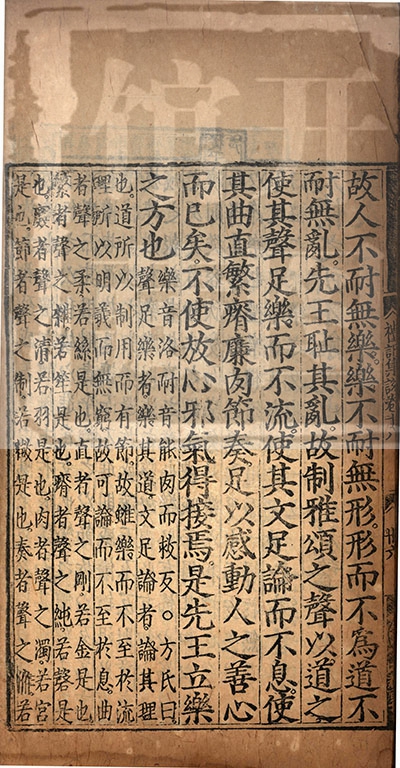 故人不耐無樂。樂不耐無形。形而不爲道不
耐無亂。先王耻其亂。故制雅頌之聲以道之
使其聲足樂而不流。使其文足論而不息。使
其曲直繁瘠廉肉節奏足以感動人之善心
而已矣。不使放心邪氣得接焉。是先王立樂
之方也
樂音洛耐音能肉而救反○方氏曰
聲足樂者樂其道文足論者論其理
也。道所以制用而有節。故雖樂而不至於流
理所以明義而無窮。故可論而不至於息。曲
者聲之柔若絲是也。直者聲之剛若金是也
繁者聲之雜若笙是也。瘠者聲之純若磬是
也。廉者聲之清若羽是也。肉者聲之濁。若宮
是也。節者聲之制若是也。奏者聲之若
禮記集說卷